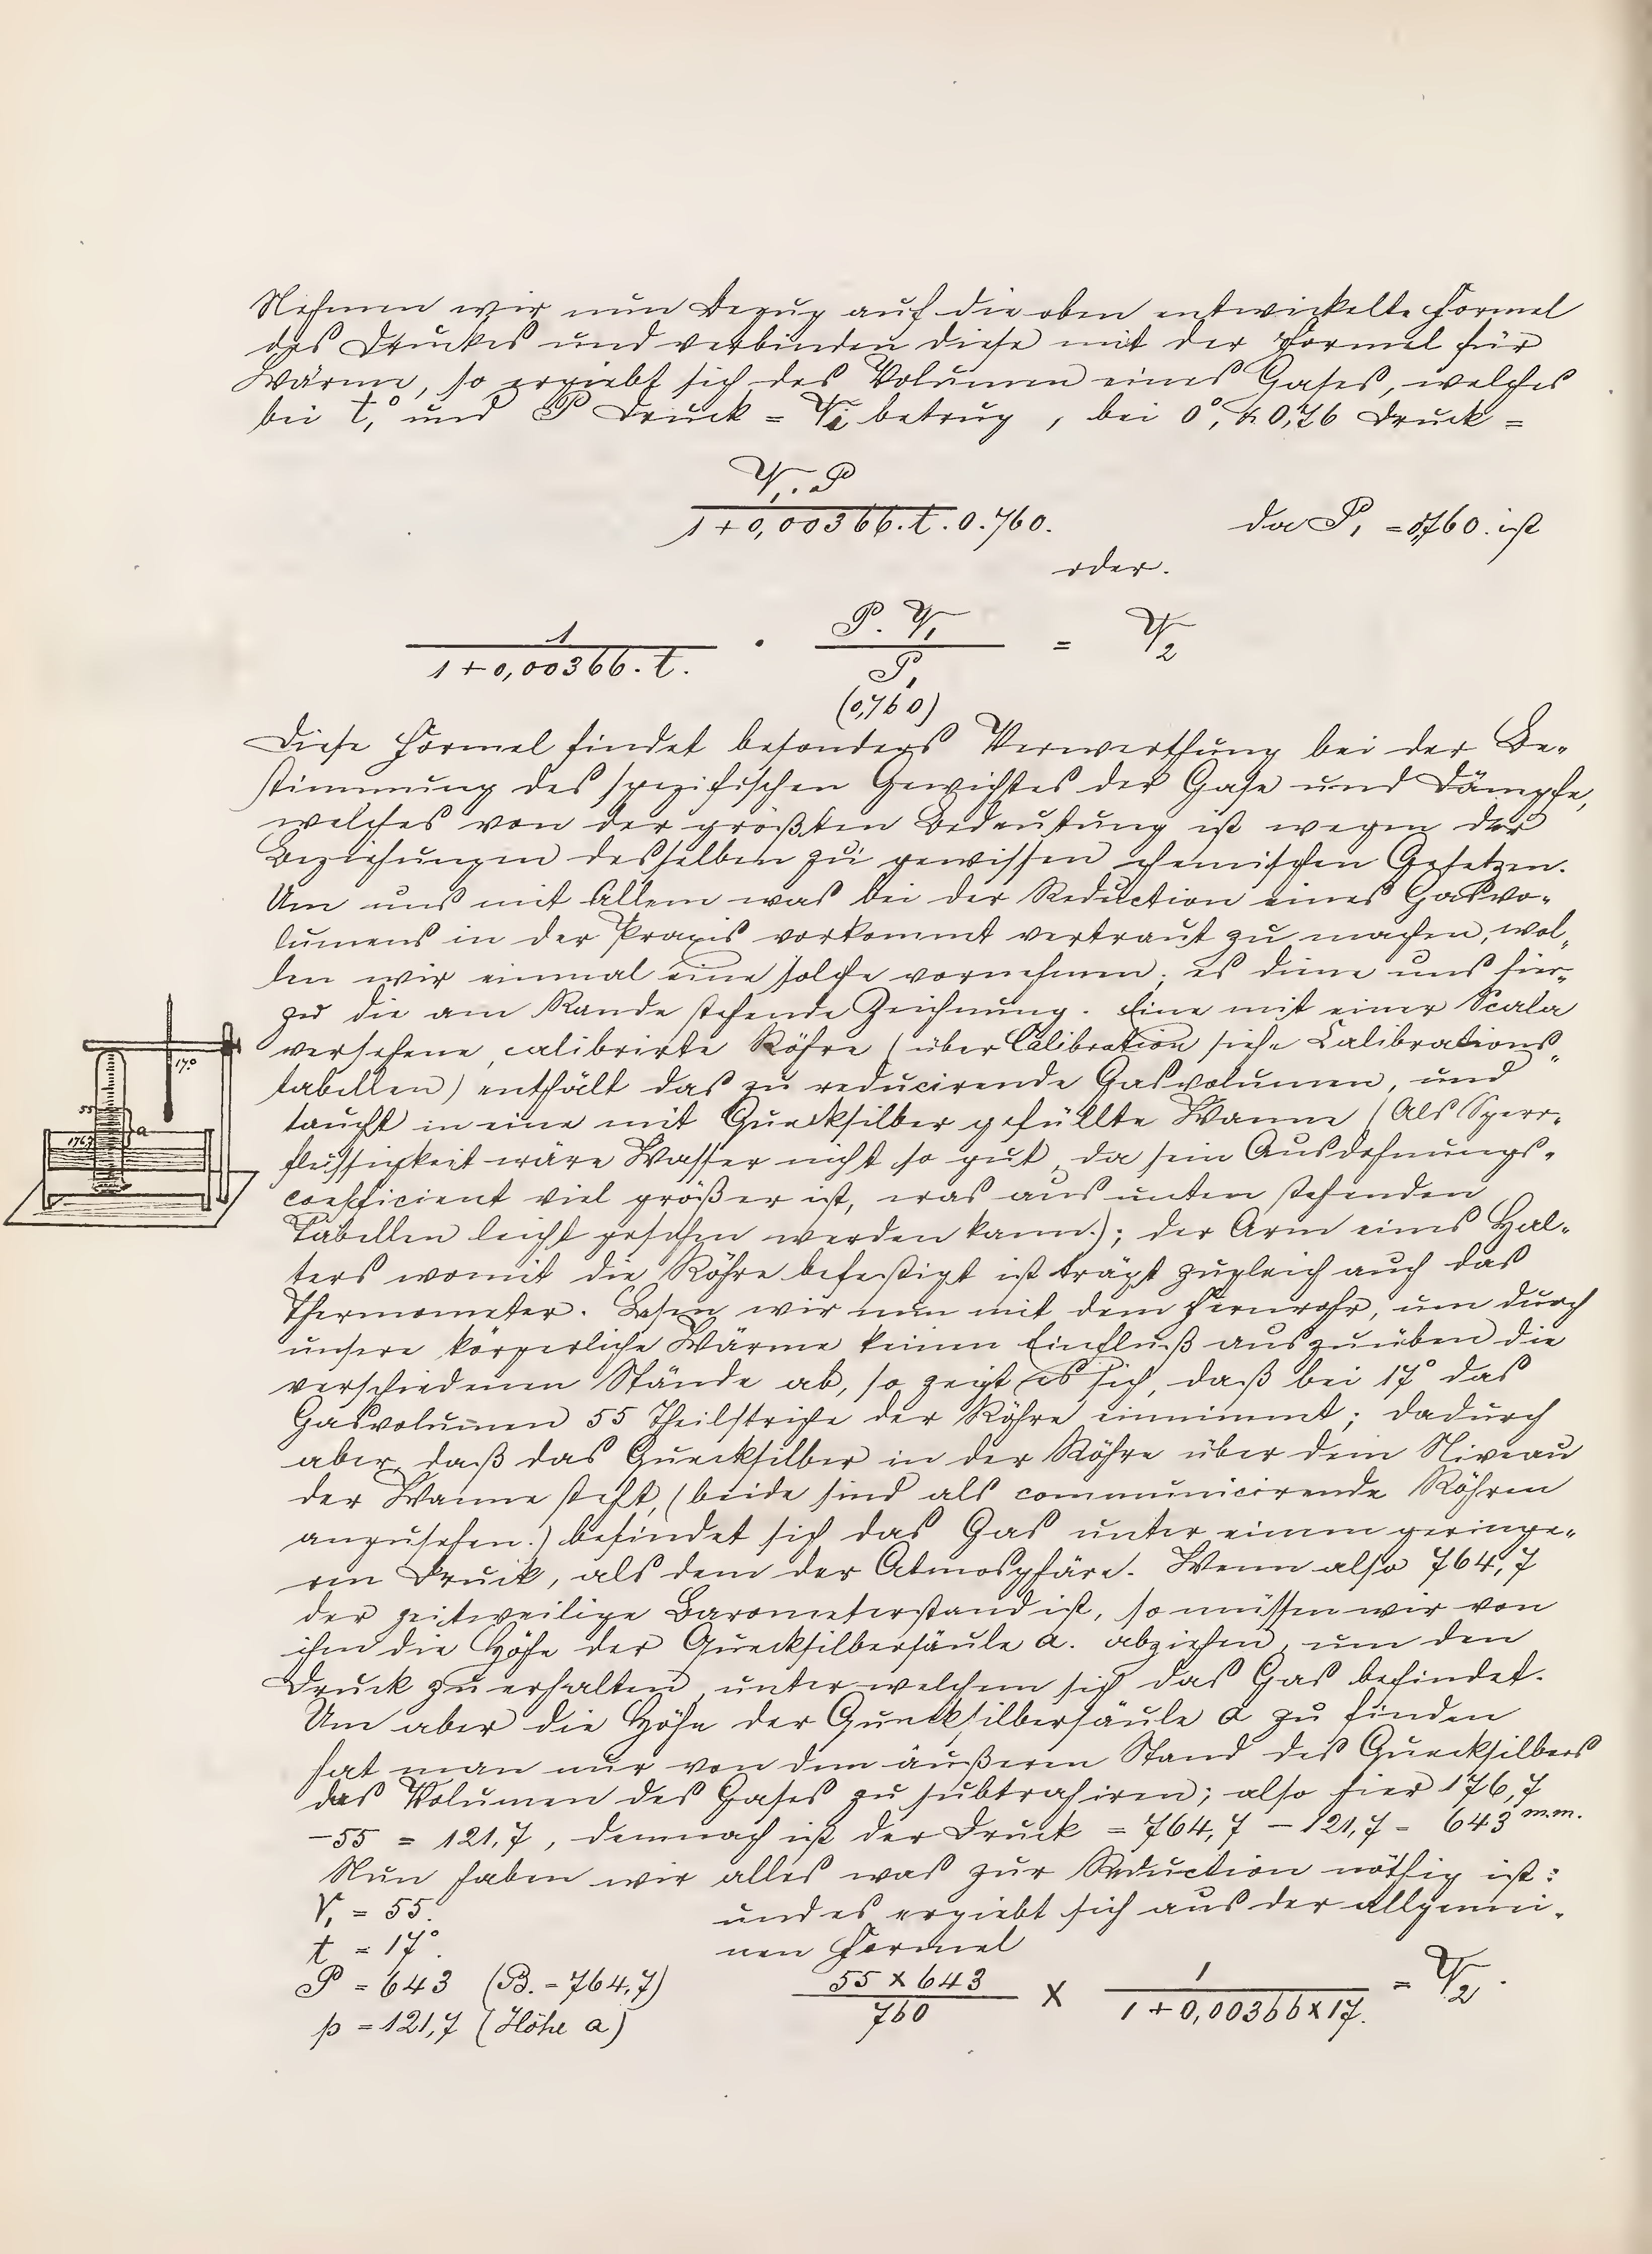 Nehmen wir nun Bezug auf die oben entwickelte Formel
des Druckes und verbinden diese mit der Formel für
Wärme, so ergiebt sich das Volumen eines Gases, welches
bei t,° und P Druck = V, betrug, bei 0°, & 0,76 Druck =
V, . P
1 + 0,00366. t. 0.760.
da P, = 0,760. ist
oder.
1
1 + 0,00366. t.
.
P. V,
P,
(0,760)
= V2
Diese Formel findet besonders Verwerthung bei der Be-
stimmung des spezifischen Gewichtes der Gase und Dämpfe,
welches von der größten Bedeutung ist wegen der
Beziehungen desselben zu gewissen chemischen Gesetzen.
Um uns mit Allem was bei der Reduction eines Gasvo-
lumens in der Praxis vorkommt vertraut zu machen, wol-
len wir einmal eine solche vornehmen; es diene uns hier-
zu die am Rande stehende Zeichnung. Eine mit einer Scala
versehene, calibrirte Röhre (über Calibration siehe Calibrations-
tabellen) enthält das zu reducirende Gasvolumen, und
taucht in eine mit Quecksilber gefüllte Wanne (Als Sperr-
flüssigkeit wäre Wasser nicht so gut, da sein Ausdehnungs-
coefficient viel größer ist, was aus unten stehenden
Tabellen leicht gesehen werden kann.); der Arm eines Hal-
ters womit die Röhre befestigt ist trägt zugleich auch das
Thermometer. Lesen wir nun mit dem Fernrohr, um durch
unsere körperliche Wärme keinen Einfluß auszuüben die
verschiedenen Stände ab, so zeigt es sich, daß bei 17° das
Gasvolumen 55 Theilstriche der Röhre einnimmt; dadurch
aber, daß das Quecksilber in der Röhre über dem Niveau
der Wanne steht, (beide sind als communicirende Röhren
anzusehen.) befindet sich das Gas unter einem geringe-
ren Druck, als dem der Atmosphäre. Wenn also 764,7
der zeitweilige Barometerstand ist, so müssen wir von
ihm die Höhe der Quecksilbersäule a. abziehen, um den
Druck zu erhalten, unter welchem sich das Gas befindet.
Um aber die Höhe der Quecksilbersäule a zu finden
hat man nur von dem äußeren Stand des Quecksilbers
das Volumen des Gases zu subtrahiren; also hier 176,7
-55 = 121,7, demnach ist der Druck = 764,7 - 121,7 = 643 m.m.
Nun haben wir alles was zur Reduction nöthig ist:
V, = 55.
t = 17°.
P = 643 (B. = 764,7)
p = 121,7 (Höhe a)
und es ergiebt sich aus der allgemei-
nen Formel
55 x 643
760
x
1
1 + 0,00366 x 17.
= V2.
17°
55
a
176,7